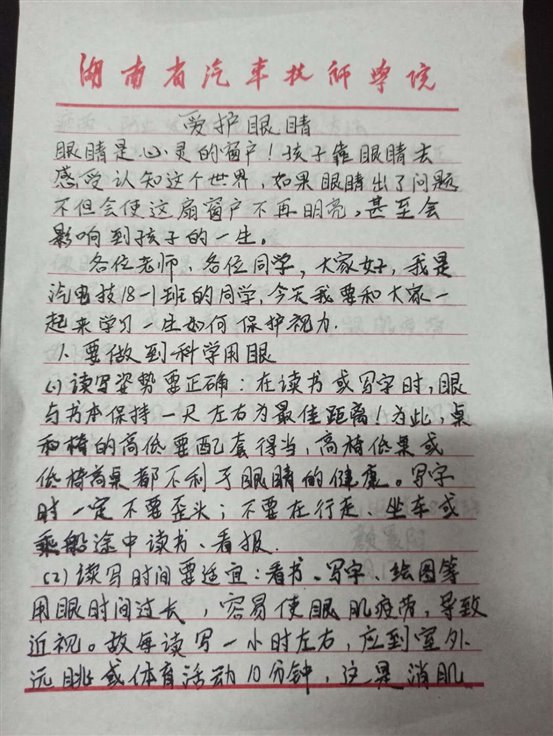 湖南省汽车技师学院
爱护眼睛
眼睛是心灵的窗户！孩子靠眼睛去
感受认知这个世界，如果眼睛出了问题
不但会使这扇窗户不再明亮。甚至会
影响到孩子的一生。
各位老师、各位同学，大家好，我是
汽电技18-1班的同学，今天我要和大家一
起来学习一生如何保护视力.
1. 要做到科学用眼
(1) 读写姿势要正确：在读书或写字时，眼
与书本保持一尺左右为最佳距离！为此，桌
和椅的高低要配套得当，高椅低桌或
低椅高桌都不利于眼睛的健康。写字
时一定不要歪头；不要在行走、坐车或
乘船途中读书、看报.
(2) 读写时间要适宜：看书、写字、绘图等
用眼时间过长，容易使眼肌疲劳，导致
近视。故每读写一小时左右，应到室外
远眺或体育活动10分钟，这是消肌